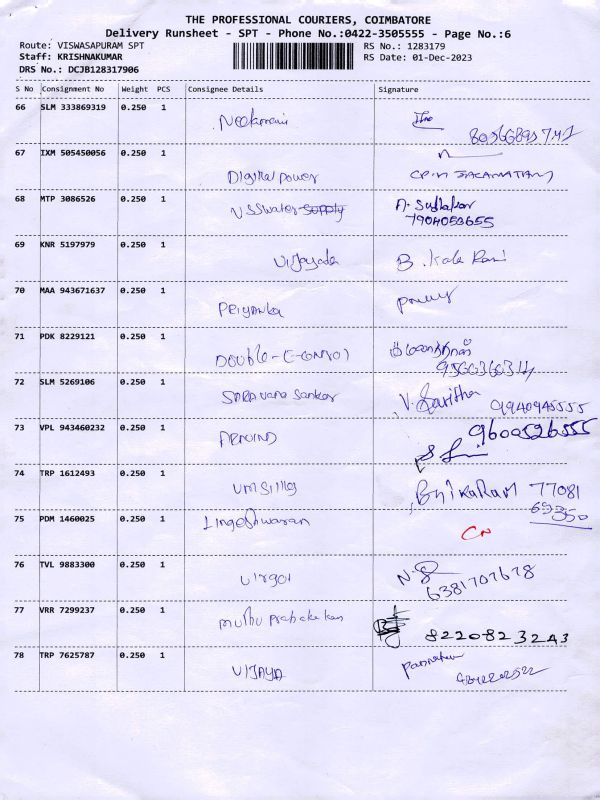 THE PROFESSIONAL COURIERS, COIMBATORE
Delivery Runsheet - SPT - Phone No.:0422-3505555 - Page No.:6
Route: VISWASAPURAM SPT RS No.: 1283179
Staff: KRISHNAKUMAR RS Date: 01-Dec-2023
DRS No.: DCJB128317906
S No Consignment No Weight PCS Consignee Details Signature
66 SLM 333869319 0.250 1
67 IXM 505450056 0.250 1 Digital power
68 MTP 3086526 0.250 1 VSSwater supply
7904053655
69 KNR 5197979 0.250 1 vijayada B. Kala Rani
70 MAA 943671637 0.250 1 Priyanka
71 PDK 8229121 0.250 1
72 SLM 5269106 0.250 1 Saravana Sankar V. Saritha 9940945555
73 VPL 943460232 0.250 1 ARVIND 9600526555
74 TRP 1612493 0.250 1 77081
69350
75 PDM 1460025 0.250 1 Lingeshwaran CN
76 TVL 9883300 0.250 1 6381707678
77 VRR 7299237 0.250 1 muthu prabakaran 8220823243
78 TRP 7625787 0.250 1 VIJAYA